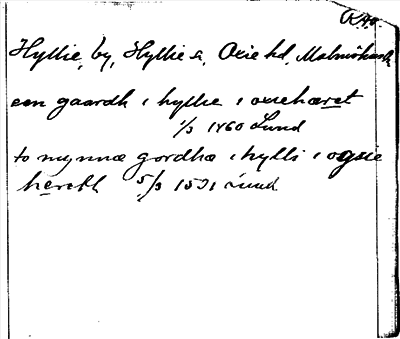 RAp.
Hyllie, by, Hyllie s, Oxie hd, Malmöhus l.
een gaardh i hyllie i oxiehæret
1/3 1460 Lund
to mynnæ gordha i hylli i ogsie
hereth 5/3 1531 Lund